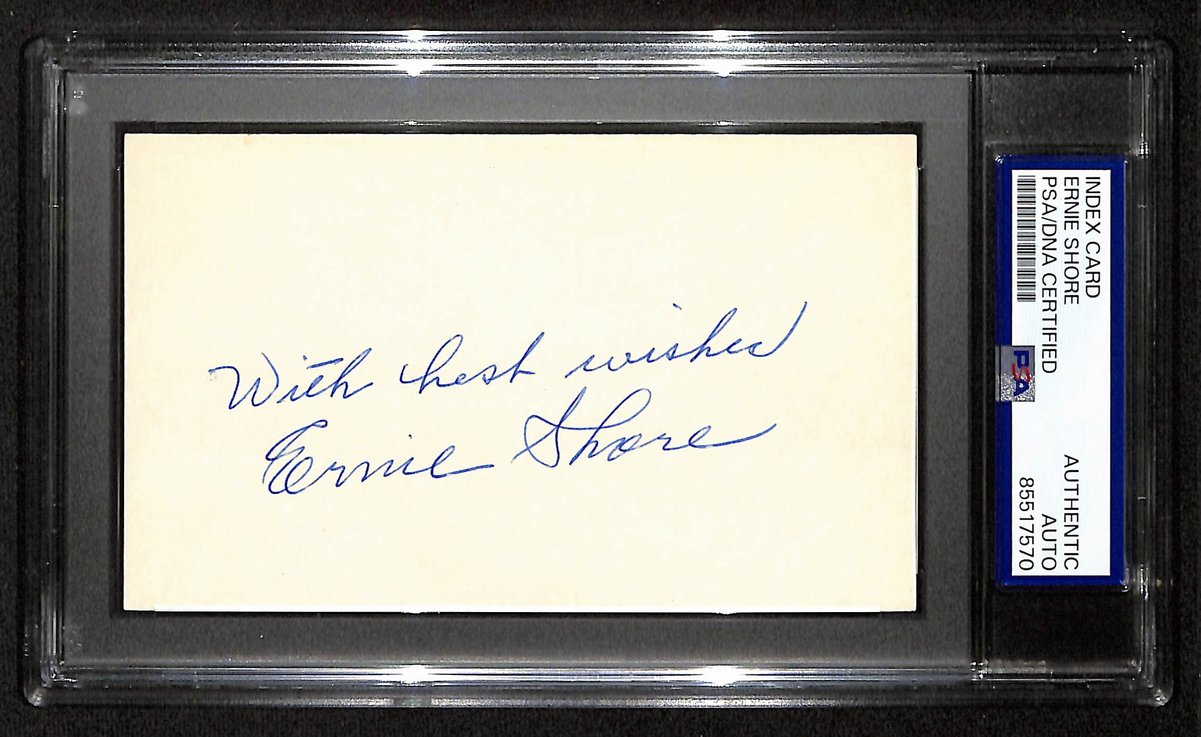 With best wishes
Ernie Shore
INDEX CARD
ERNIE SHORE
PSA/DNA CERTIFIED
AUTHENTIC
AUTO
85517570
PSA